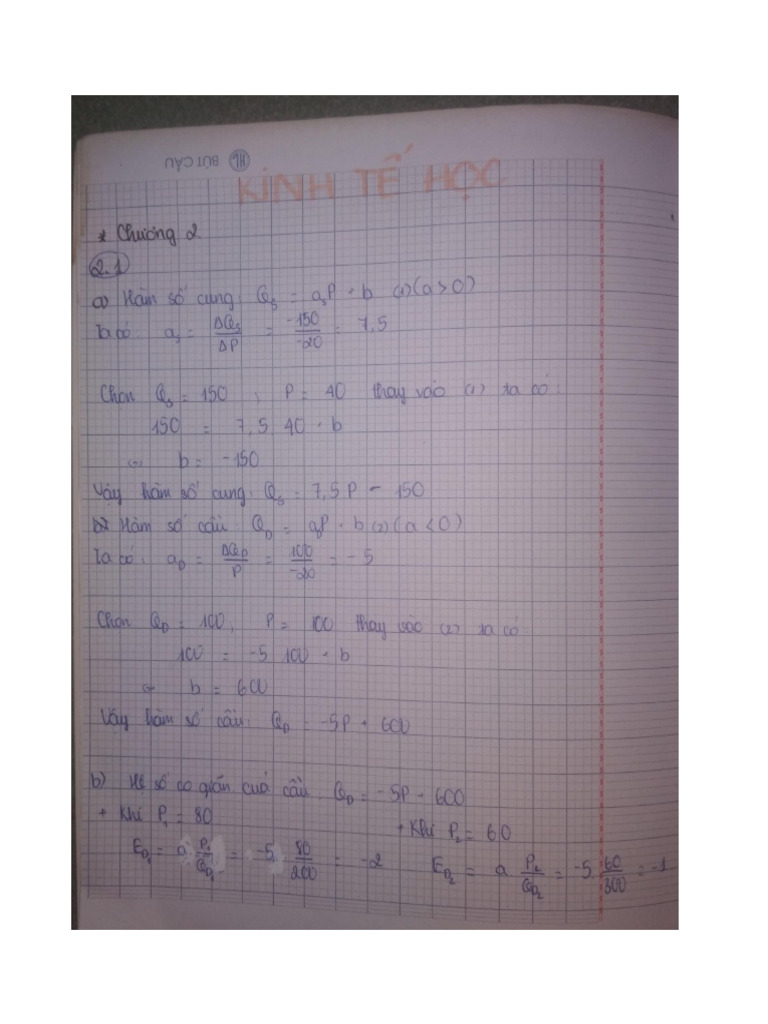 HL BÚT CẬU
KINH TẾ HỌC
* Chương 2
2.1
a) Hàm số cung: Qs = asP + b (1) (a > 0)
Ta có: as = ΔQs/ΔP = -150/-20 = 7,5
Chọn Qs = 150, P = 40 thay vào (1) ta có:
150 = 7,5.40 + b
⇔ b = -150
Vậy hàm số cung: Qs = 7,5P - 150
Hàm số cầu: QD = aP + b (2) (a < 0)
Ta có: aD = ΔQD/P = 100/-20 = -5
Chọn QD = 100, P = 100 thay vào (2) ta có:
100 = -5.100 + b
⇔ b = 600
Vậy hàm số cầu: QD = -5P + 600
b) Hệ số co giãn của cầu: QD = -5P + 600
+ Khi P1 = 80 + Khi P2 = 60
ED1 = a.P1/QD1 = -5.80/200 = -2 ED2 = a.P2/QD2 = -5.60/300 = -1